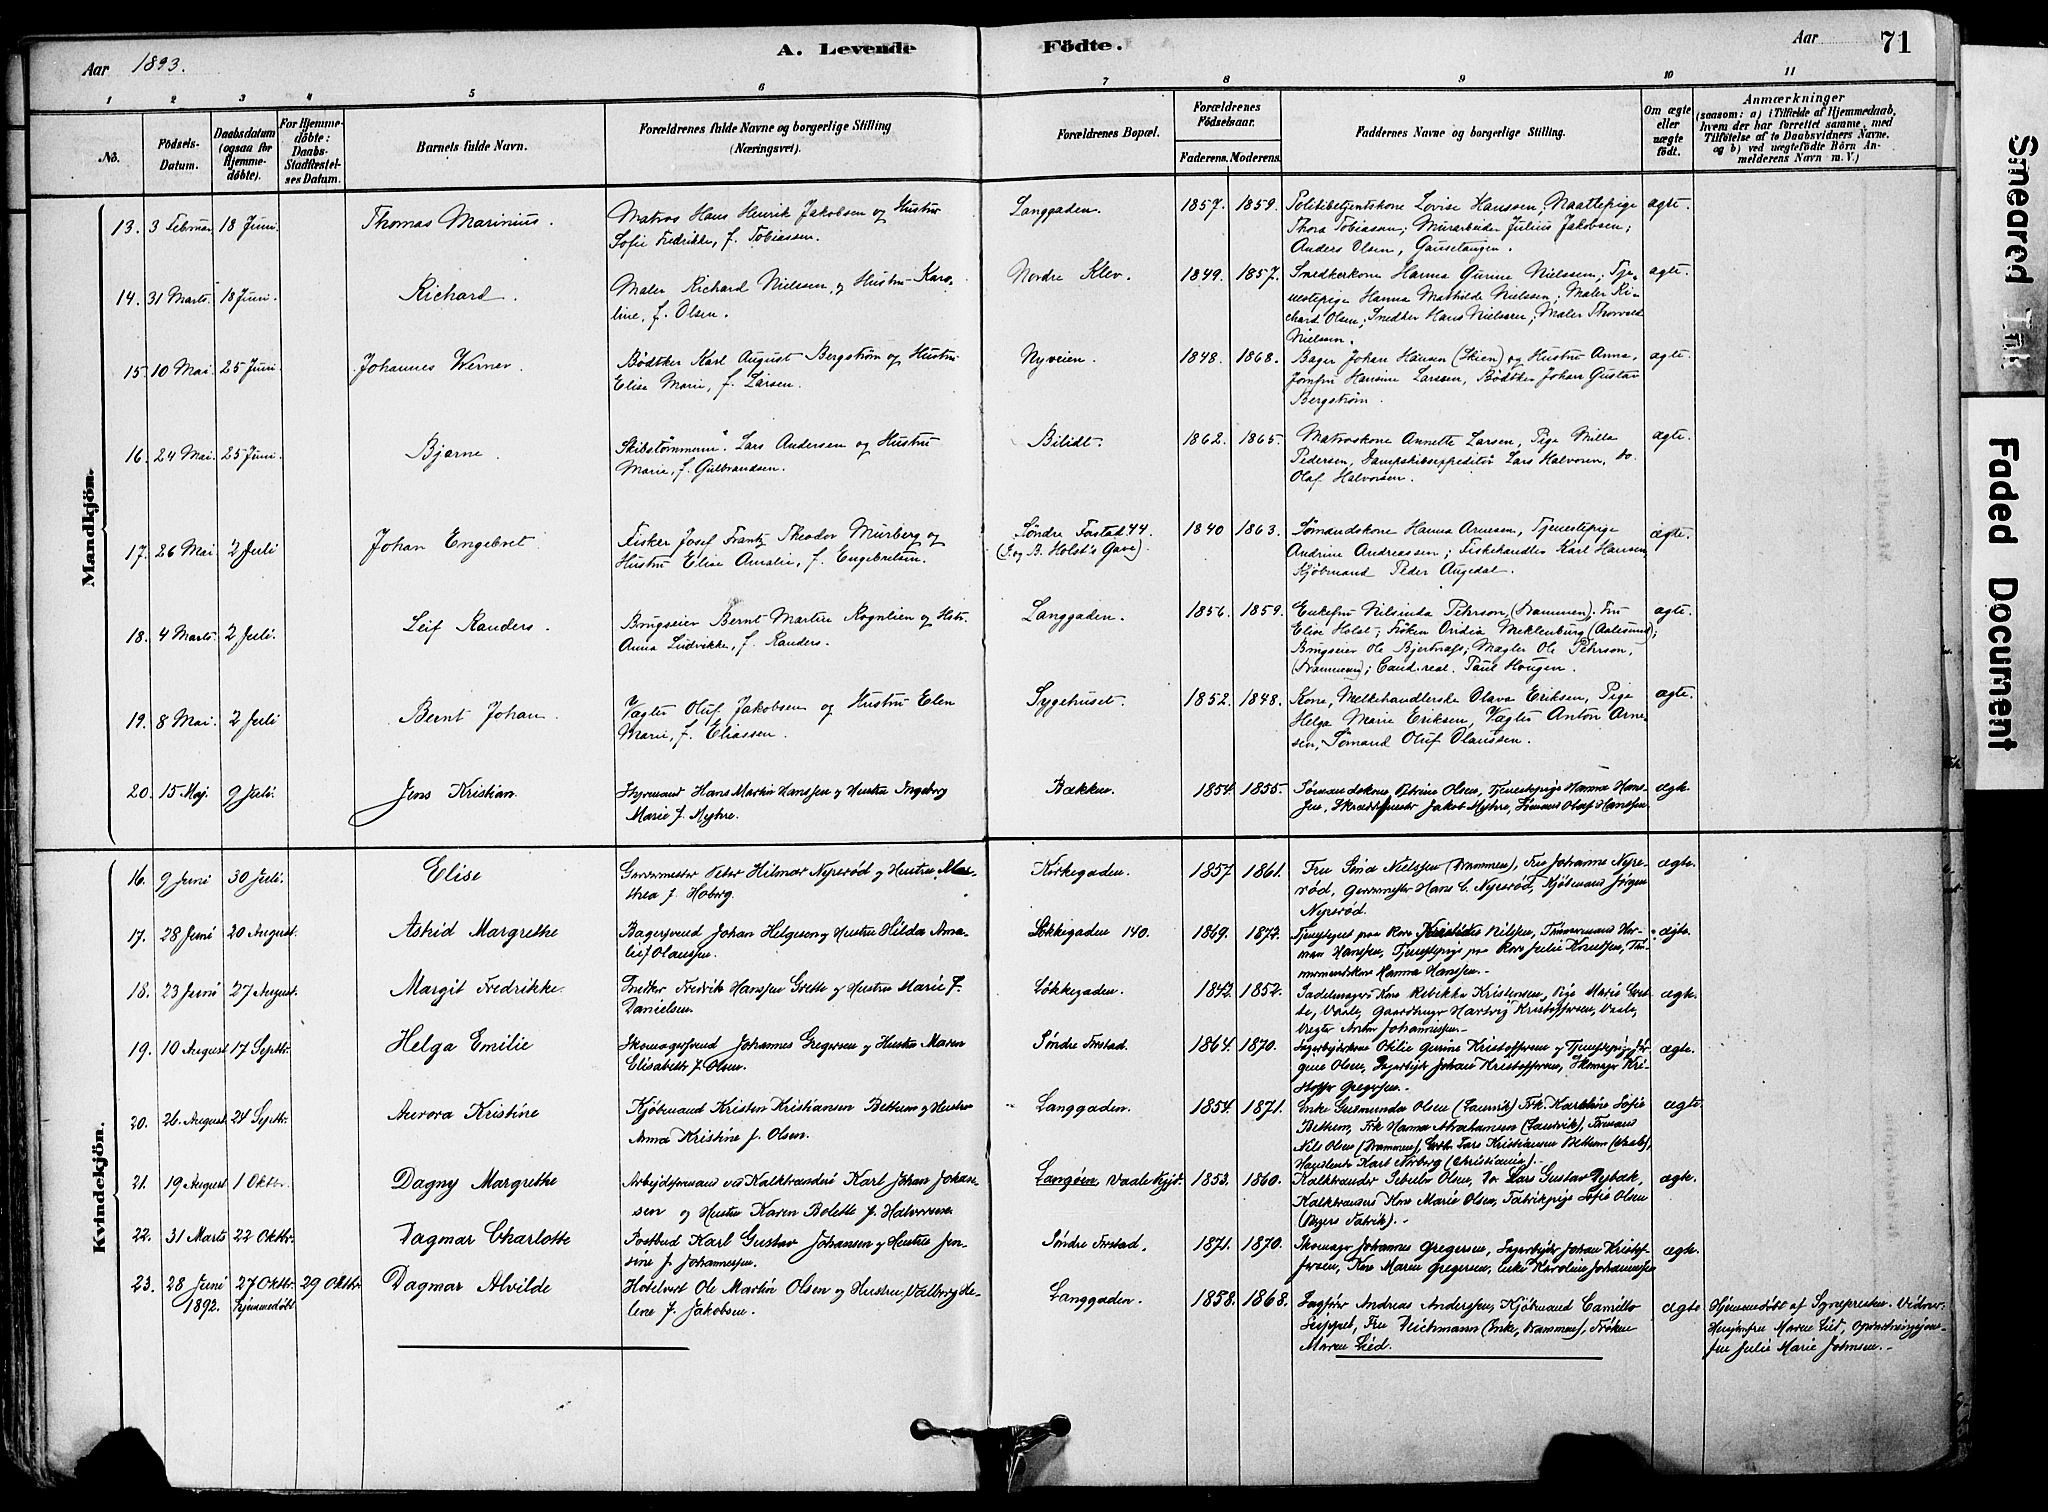 A. Levende Födte.
Aar 1893.
Aar
71
1 2 3 4 5 6 7 8 9 10 11
No.
Födsels-Datum.
Daabsdatum (ogsaa for Hjemmedöbte).
For Hjemmedöbte: Daabs-Stadfæstelses Datum.
Barnets fulde Navn.
Forældrenes fulde Navne og borgerlige Stilling (Næringsvei).
Forældrenes Bopæl.
Forældrenes Födselsaar.
Faderens. Moderens.
Faddernes Navne og borgerlige Stilling.
Om ægte eller uægte födt.
Anmærkninger
(saasom: a) i Tilfælde af Hjemmedaab, hvem der har forrettet samme, med Tilföielse af to Daabsvidners Navne. og b) ved uægtefödte Börn Anmelderens Navn m. V.)
Mandkjön.
13. 3 Februar 18 Juni. Thomas Marinius. Matros Hans Henrik Jakobsen og Hustru
Sofie Fredrikke, f. Tobiassen.
Langgaden. 1857. 1859. Politibetjentskone Lovise Hanssen, Naatlepige
Thora Tobiassen; Murarbeider Julius Jakobsen;
Anders Olsen, Gausetangen.
ægte.
14. 31 Marts. 18 Juni. Richard. Maler Richard Nielsen, og Hustru Karo-
line, f. Olsen.
Nordre Klev. 1849. 1857. Snedkerkone Hanna Gurine Nielssen; Tje-
nestepige Hanna Mathilde Nielssen; Maler Ri-
chard Olsen; Snedker Hans Nielssen; Maler Thorvald
Nielssen.
ægte.
15. 10 Mai. 25 Juni. Johannes Werner. Bödtker Karl August Bergström og Hustru
Elise Marie, f. Larsen.
Nyveien. 1848. 1868. Bager Johan Hansen (Skien) og Hustru Anna,
Jomfru Hansine Larssen, Bödtker Johan Gustav
Bergström.
ægte.
16. 24 Mai. 25 Juni. Bjarne. Skibstömmerm. Lars Andersen og Hustru
Marie, f. Gulbrandsen.
Bilidt. 1862. 1865. Matroskone Annette Larsen, Pige Milla
Pedersen, Dampskibsexpeditör Lars Halvorsen, do.
Olaf Halvorsen.
ægte.
17. 26 Mai. 2 Juli Johan Engebret. Fisker Josef Frantz Theodor Murberg og
Hustru Elise Amalie, f. Engebretsen.
Söndre Forstad 44.
(J. og B. Holst's Gave). 1840 1863. Sömandskone Hanna Arnesen, Tjenestepige
Andrine Andreassen; Fiskehandler Karl Hansen
Kjöbmand Peder Augedal.
ægte.
18. 4 Marts. 2 Juli. Leif Randers. Brugseier Bernt Martin Rognlien og Hstr.
Anna Ludvikke, f. Randers.
Langgaden. 1856. 1859. Enkefru Nilsinda Pehrson, (Drammen). Fru
Elise Holst; Fröken Ovidia Mecklenburg (Aalesund);
Brugseier Ole Bjertnæss; Mægler Ole Pehrson,
(Drammen); Cand. real. Paul Hougen.
ægte.
19. 8 Mai. 2 Juli Bernt Johan. Vægter Oluf Jakobsen og Hustru Elen
Marie, f. Eliassen.
Sygehuset. 1852. 1848. Kone, Melkehandlerske Olava Eriksen, Pige
Helga Marie Eriksen, Vægter Anton Arne-
sen, Sömand Oluf Olaussen.
ægte.
20. 15 Maj. 9 Juli. Jens Kristian. Styrmand Hans Martin Hanssen og Hustru Ingeborg
Marie f. Myhre.
Bækken. 1854. 1855. Sömandskone Petrine Olsen, Tjenestepige Hanna Hans-
sen, Skræddermester Jakob Myhre, Sömand Olaf Hanssen.
ægte.
Kvindekjön.
16. 9 Juni 30 Juli. Elise Garvermester Peter Hilmar Nysröd og Hustru Mar-
thea f. Hoberg.
Kirkegaden. 1857. 1861. Fru Nielssen (Drammen), Fru Johanne Nyse-
röd, Garvermester Hans C. Nysröd, Kjöbmand Jörgen
Nysröd.
ægte.
17. 28 Juni 20 August. Astrid Margrethe Bagersvend Johan Helgesen og Hustru Hilda Ama-
lie f. Olaussen.
Lökkegaden 140. 1869. 1872. Nilssen, Tömmermand Her-
man Hanssen, Tjenestepige Julie Knutsen, Töm-
mermandskone Hanna Hanssen.
ægte.
18. 23 Juni 27 August. Margit Fredrikke. Snedker Fredrik Hanssen Grette og Hustru Marie f.
Danielsen.
Lökkegaden. 1842. 1852. Sadelmagers Kone Rebekka Kristensen, Pige Marie Gret-
te, Vaale, Gaardbruger Hartvig Kristoffersen, Vaale,
Vægter Anton Johannessen.
ægte.
19. 10 August 17 Septbr. Helga Emilie Skomagersvend Johannes Gregersen og Hustru Maren
Elisabeth f. Olsen.
Söndre Forstad. 1864. 1870. Otilie Gurine Kristoffersen og Tjenestepige Jör-
gine Olsen, Johan Kristoffersen, Skomager Kri-
stoffer Gregersen.
ægte.
20. 26 August 24 Septbr. Aurora Kristine Kjöbmand Kristen Kristiansen Bettum og Hustru
Anna Kristine f. Olsen.
Langgaden. 1854. 1871. Enke Gusmunda Olsen (Laurvik) Frk. Karoline Sofie
Bettum, Frk Hanna Abrahamsen (Laurvik), Sömand
Nils Olsen (Drammen), Lars Kristiansen Bettum (Vaale),
Karl Norberg (Christiania).
ægte.
21. 19 August 1 Oktbr. Dagny Margrethe Arbejdsmand ved Kalkbrænderi Karl Johan Johan-
sen og Hustru Karen Bolette f. Halvorsen.
Langöen, Vaale Prgjd. 1853. 1860. Kalkbrænder Olsen, Do Lars Gustav Dybæk,
Kalkbrænders Kone Marie Olsen, Fabrikpige Sofie Olsen
(Bugges Fabrik).
ægte.
22. 31 Marts 22 Oktbr. Dagmar Charlotte Postbud Karl Gustav Johansen og Hustru Jen-
sine f. Johannessen.
Söndre Forstad. 1871. 1870. Skomager Johannes Gregersen, Johan Kristof-
fersen, Kone Maren Gregersen, Enke Karoline Johannessen
ægte.
23. 28 Juni
1892. 27 Oktbr.
hjemmedöbt 29 Oktbr. Dagmar Alvilde Hotelvert Ole Martin Olsen og Hustru Valborg He-
lene f. Jakobsen.
Langgaden. 1858. 1868. Sagförer Andreas Anderssen, Kjöbmand Camillo
Seippel, Fru Deichmann (Enke, Drammen), Fröken
Maren Lied.
ægte. Hjemmedöbt af Sognepresten. Vidner:
Maren Lied,
Julie Marie Johnsen.
Smeared Ink
Faded Document